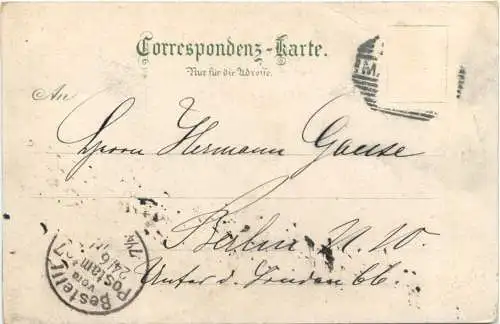 Correspondenz-Karte.
Nur für die Adresse.
M.
An
Herrn Hermann Gause
Berlin N. W.
Unter d. Linden 66
Bestellt
vom
Postamt 7
24/6
7¼